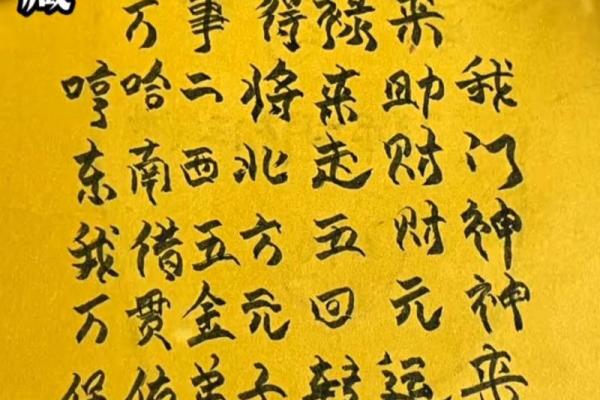 藏
万事得禄来
哼哈二将来助我
东南西北走财门
我借五方五财神
万贯金元回元神
保佑弟子转运来